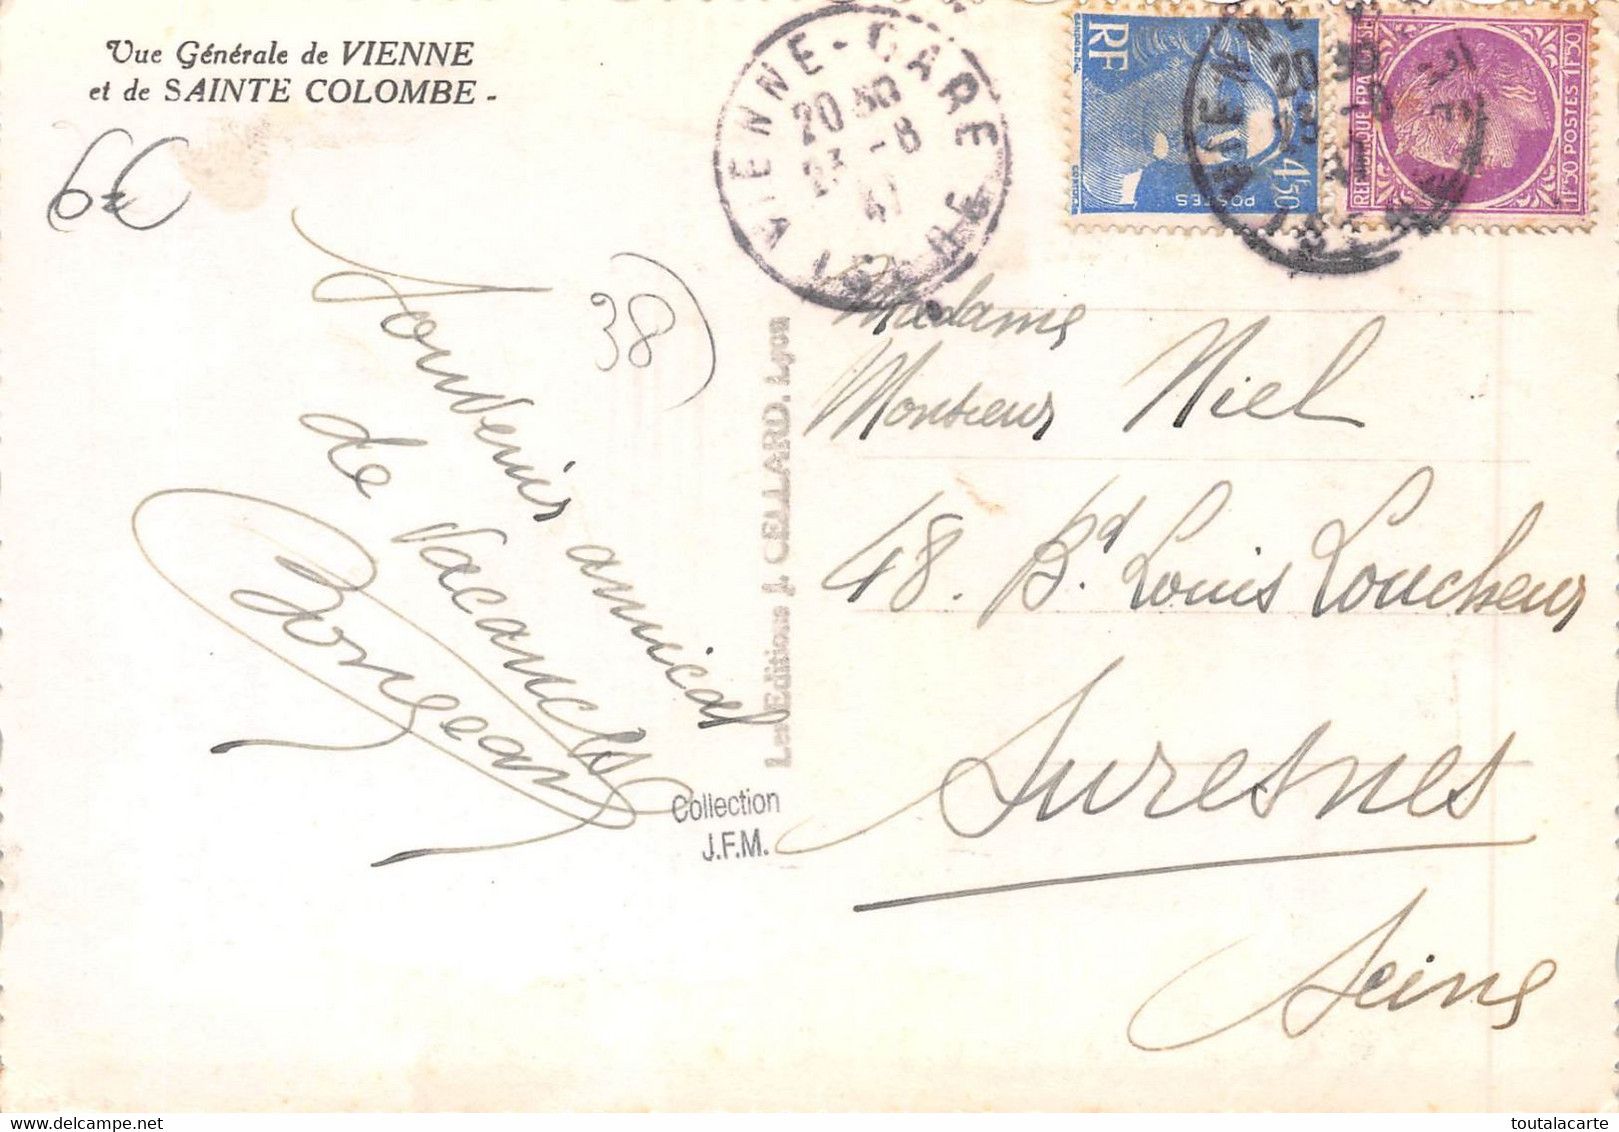 Vue Générale de VIENNE
et de SAINTE COLOMBE -
6€
38)
Souvenir amical
de vacances
VIENNE-GARE
20 30
23 -8
47
ISERE
RF
POSTES
4F50
VIENNE
20 30
23 -8
47
REPUBLIQUE FRANÇAISE
1F50 POSTES 1F50
Les Editions J. CELLARD. Lyon
Madame
Monsieur Niel
48. Bd. Louis Loucheur
Suresnes
Seine
Collection
J.F.M.
delcampe.net
toutalacarte